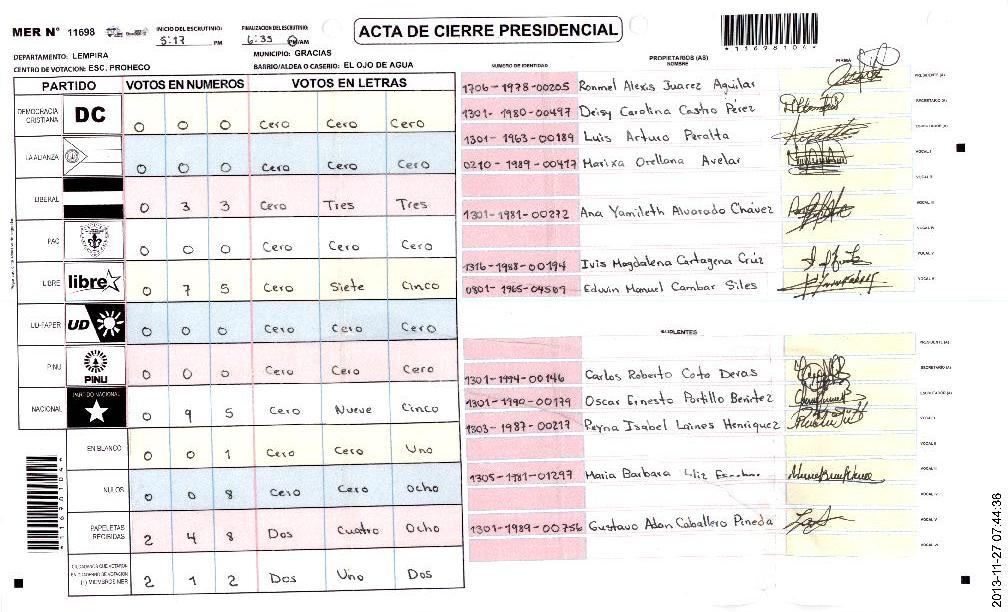 MER N° 11698
INICIO DEL ESCRUTINIO: 5:17 PM
FINALIZACION DEL ESCRUTINIO: 6:35 PM/AM
ACTA DE CIERRE PRESIDENCIAL
*1169810 4*
DEPARTAMENTO: LEMPIRA
MUNICIPIO: GRACIAS
CENTRO DE VOTACION: ESC. PROHECO
BARRIO/ALDEA O CASERIO: EL OJO DE AGUA
PARTIDO VOTOS EN NUMEROS VOTOS EN LETRAS
DEMOCRACIA CRISTIANA DC 0 0 0 Cero Cero Cero
LA ALIANZA 0 0 0 Cero Cero Cero
LIBERAL 0 3 3 Cero Tres Tres
PAC 0 0 0 Cero Cero Cero
LIBRE libre 0 7 5 Cero Siete Cinco
UD-FAPER UD 0 0 0 Cero Cero Cero
PINU PINU 0 0 0 Cero Cero Cero
NACIONAL PARTIDO NACIONAL 0 9 5 Cero Nueve Cinco
EN BLANCO 0 0 1 Cero Cero Uno
NULOS 0 0 8 Cero Cero Ocho
PAPELETAS RECIBIDAS 2 4 8 Dos Cuatro Ocho
CIUDADANOS QUE VOTARON EN CUADERNO DE VOTACION (+) MIEMBROS MER 2 1 2 Dos Uno Dos
NUMERO DE IDENTIDAD PROPIETARIOS (AS) NOMBRE FIRMA
1706-1978-00205 Ronmel Alexis Juarez Aguilar PRESIDENTE (A)
1301-1980-00497 Deisy Carolina Castro Pérez SECRETARIO (A)
1301-1963-00189 Luis Arturo Peralta ESCRUTADOR (A)
0210-1989-00417 Marixa Orellana Avelar VOCAL I
VOCAL II
1301-1981-00272 Ana Yamileth Alvarado Chávez VOCAL III
VOCAL IV
1316-1988-00194 Ivis Magdalena Cartagena Cruz VOCAL V
0801-1965-04507 Edwin Manuel Cambar Siles VOCAL VI
SUPLENTES
PRESIDENTE (A)
1301-1994-00146 Carlos Roberto Coto Deras SECRETARIO (A)
1301-1990-00179 Oscar Ernesto Portillo Benitez ESCRUTADOR (A)
1303-1987-00217 Reyna Isabel Laines Henriquez VOCAL I
VOCAL II
1305-1981-01297 Maria Barbara VOCAL III
VOCAL IV
1301-1989-00756 Gustavo Adan Caballero Pineda VOCAL V
VOCAL VI
2013-11-27 07:44:36